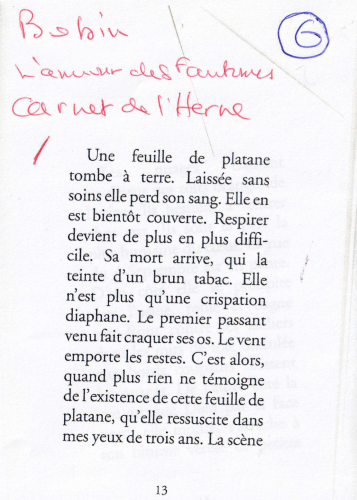 Bobin
6
L'amour des Fantômes
Carnet de l'Herne
Une feuille de platane
tombe à terre. Laissée sans
soins elle perd son sang. Elle en
est bientôt couverte. Respirer
devient de plus en plus diffi-
cile. Sa mort arrive, qui la
teinte d'un brun tabac. Elle
n'est plus qu'une crispation
diaphane. Le premier passant
venu fait craquer ses os. Le vent
emporte les restes. C'est alors,
quand plus rien ne témoigne
de l'existence de cette feuille de
platane, qu'elle ressuscite dans
mes yeux de trois ans. La scène
13